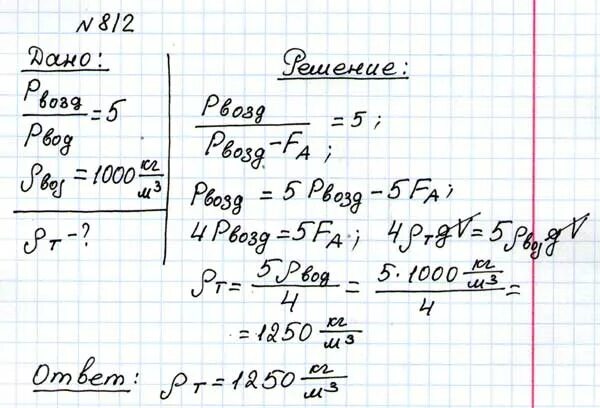 № 812
Дано:
Pвозд/Pвод = 5
ρвод = 1000 кг/м³
ρт - ?
Решение:
Pвозд/(Pвозд - FA) = 5;
Pвозд = 5 Pвозд - 5FA;
4 Pвозд = 5FA; 4ρтgV = 5ρводgV
ρт = 5ρвод/4 = (5·1000 кг/м³)/4 =
= 1250 кг/м³
Ответ: ρт = 1250 кг/м³